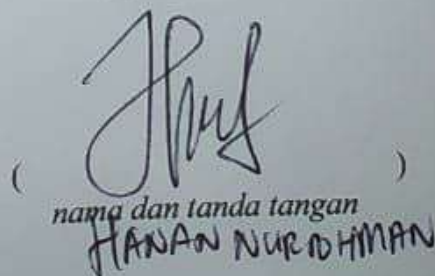 ( )
nama dan tanda tangan
HANAN NURROHMAN